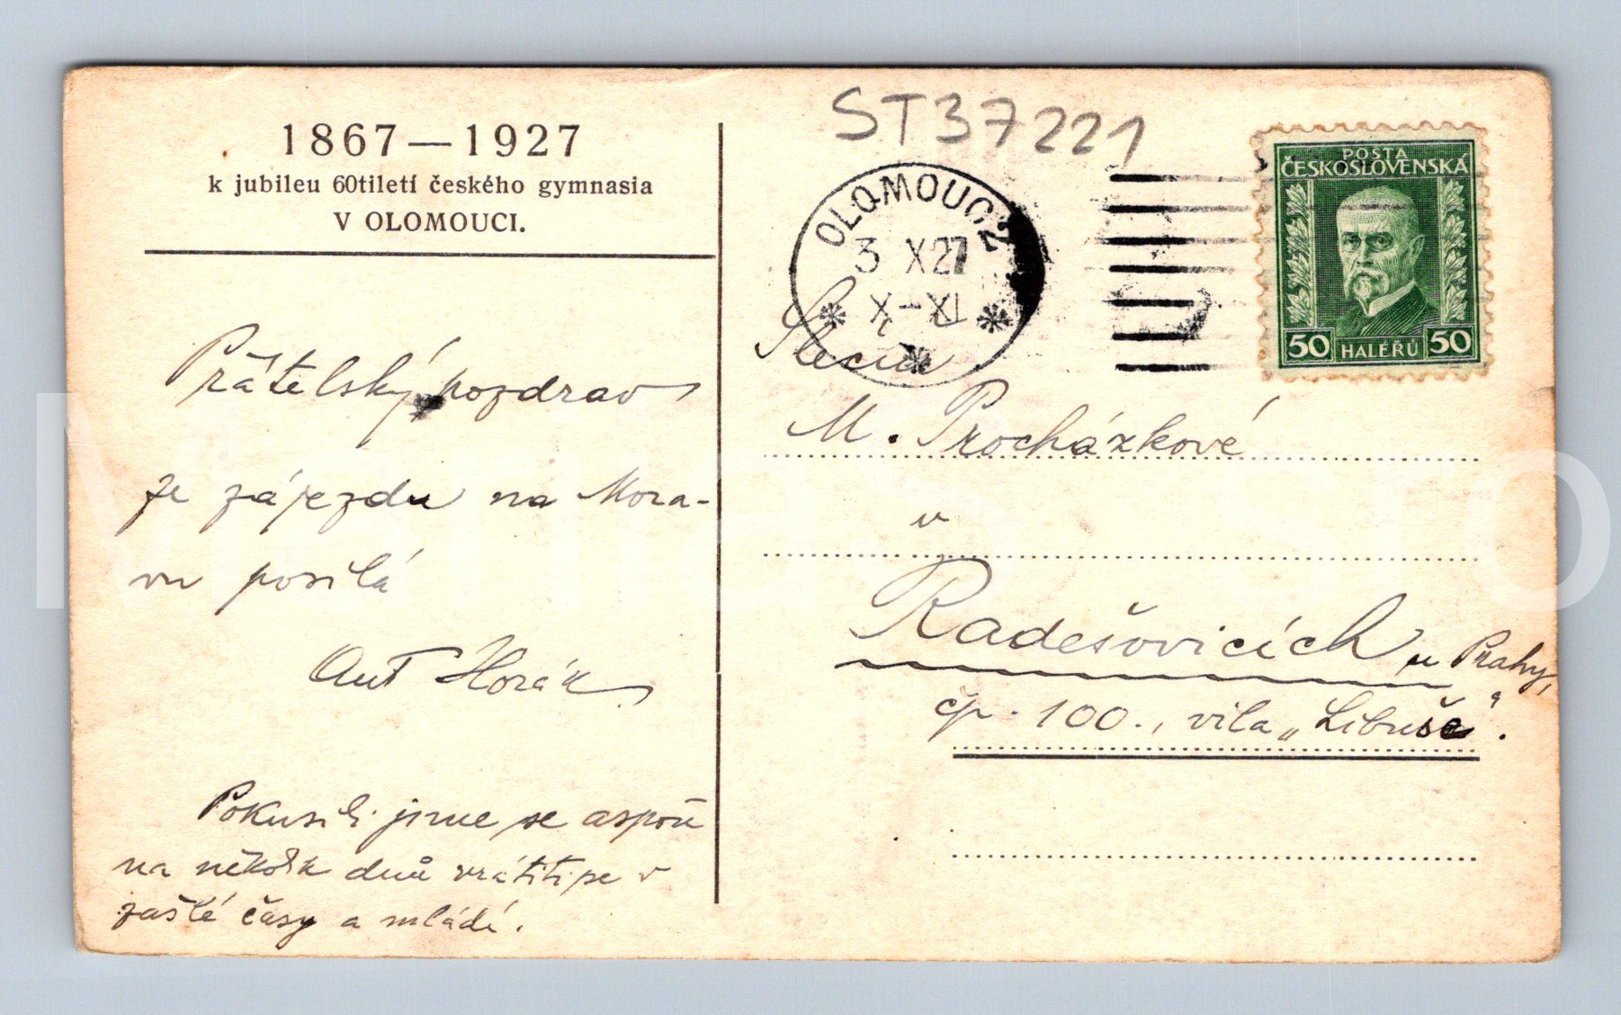 1867—1927
k jubileu 60tiletí českého gymnasia
V OLOMOUCI.
Přátelský pozdrav
ze zájezdu na Mora-
vu posílá
Ant Horák
Pokusili jsme se aspoň
na několik dnů vrátiti se v
zašlé časy a mládí.
ST37221
OLOMOUC 2
3 X 27
X-XI
POSTA
ČESKOSLOVENSKÁ
50 HALÉŘŮ 50
Slečna
M. Procházkové
v
Radešovicích u Prahy,
čp. 100., vila „Libuše“.